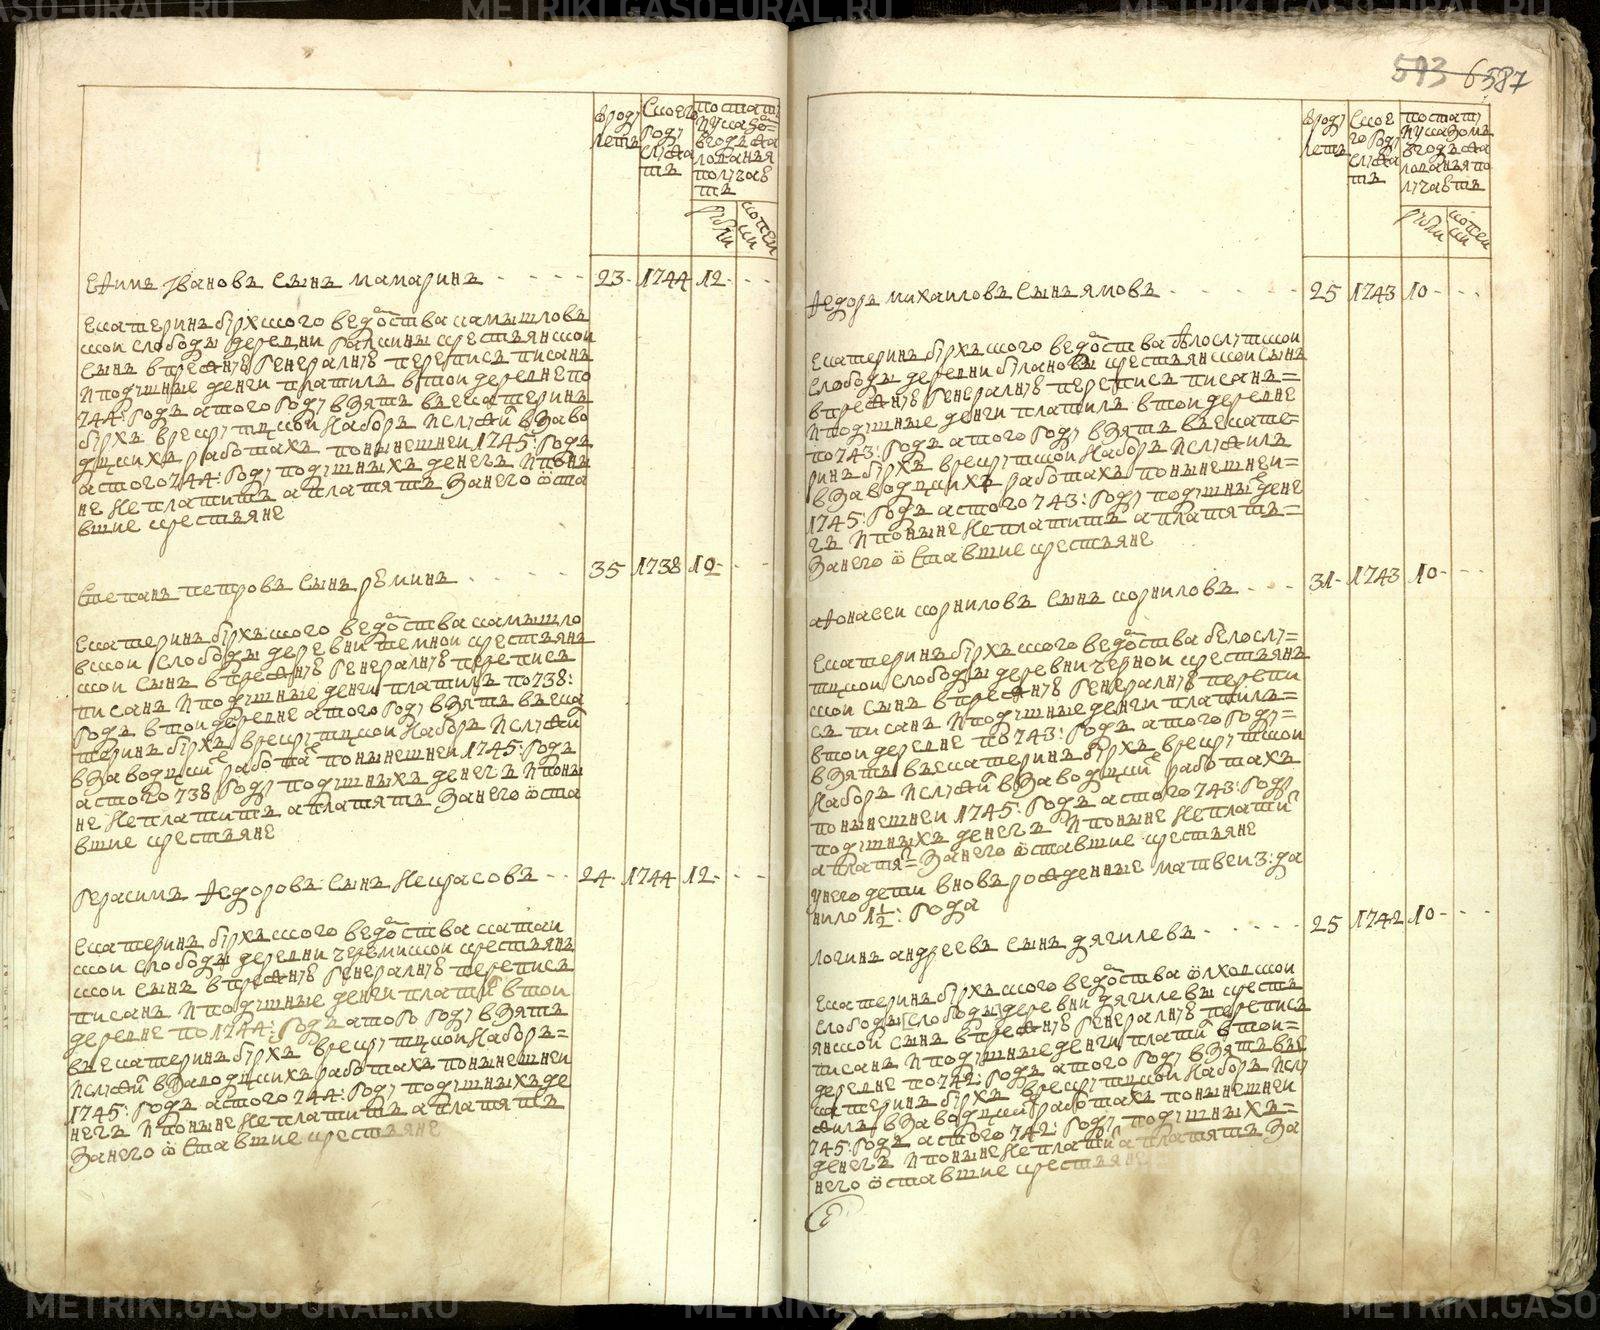 METRIKI.GASO-URAL.RU
593 6587
вроду
летъ
Коего
году
служи
тъ
по штату
и указо=
вгодъ жа
лованья
получае
тъ
рубли
копеи
ки
Ефимъ Ивановъ сынъ мамаринъ - - - - 23 - 1744 12 - - -
Екатеринъ бурхского ведомства камышловъ
ской слободы деревни крестьянской
сынъ впрежнюю генералную перепись писанъ
и подушные денги платилъ втой деревне по
744: годъ а того году взятъ в екатеринъ
бурхъ врекрутцкой наборъ и служи взаво
цкихъ работахъ по нынешней 1745: годъ
а с того 744: году подушныхъ денегъ и поны
не не платитъ а платятъ за него оста
вшие крестьяне
Степанъ петровъ сынъ ръминъ - - - - 35 1738 10 - - -
Екатеринъ бурхского ведомства камышло
вской слободы деревни темной крестьянъ
ской сынъ впрежнюю генералную перепись
писанъ и подушные денги платилъ по 738:
годъ втой деревне а того году взятъ в ека
теринъ бурхъ врекрутцкой наборъ и служи
взаводцки работа по нынешней 1745: годъ
а с того 738 году подушныхъ денегъ и поны
не не платитъ а платятъ за него оста
вшие крестьяне
Герасимъ Федоровъ сынъ Некрасовъ - - 24 - 1744 12 - - -
Екатеринъ бурхского ведомства катай
ской слободы деревни черемиской крестьянъ
ской сынъ впрежнюю генералную перепись
писанъ и подушные денги плати втой
деревне по 1744: годъ а того году взятъ
в екатеринъ бурхъ врекрутцкой наборъ=
и служи взаводцкихъ работахъ по нынешней
1745: годъ а с того 744: году подушныхъ де
негъ и поныне не платитъ а платятъ
за него оставшие крестьяне
вроду
летъ
Свое
го году
служи
тъ
по штату
и указомъ
вгодъ жа
лованья по
лучаетъ
рубли
копеи
ки
Федоръ михаиловъ сынъ ямовъ - - - - 25 1743 10 - - -
Екатеринъ бурхъского ведомства белослутской
слободы деревни булановы крестьянской сынъ
впрежнюю генералную перепись писанъ=
и подушные денги платилъ втой деревне
по 743: годъ а того году взятъ в екате=
ринъ бурхъ врекрутской наборъ и служилъ
взаводцкихъ работахъ по нынешней=
1745: годъ а с того 743: году подушны дене
гъ и поныне не платитъ а платятъ=
за него оставшие крестьяне
афонасеи корниловъ сынъ корниловъ - - - 31 - 1743 10 - - -
Екатеринъ бурхъского ведомства белослу=
тцкой слободы деревни черной крестьянъ
ской сынъ впрежнюю генералную перепи
съ писанъ и подушные денги платилъ=
втой деревне по 743: годъ а того году=
взятъ в екатеринъ бурхъ врекрутской
наборъ и служи взаводцки работахъ
по нынешней 1745: годъ а с того 743: году
подушныхъ денегъ и поныне не плати
а платя= за него оставшие крестьяне
у него дети вновь рожденные матвеи 3: да
нило 1 1/2: года
логинъ андреевъ сынъ дягилевъ - - - - - 25 1742 10 - - -
Екатеринъ бурхъского ведомства олховской
слободы [слободы] деревни дягилевы кресть
янской сынъ впрежнюю генералную перепись
писанъ и подушные денги плати втой=
деревне по 742: годъ а того году взятъ в е
катеринъ бурхъ врекрутцкой наборъ и слу
жилъ взаводцкий работахъ по нынешней
745: годъ а с того 742: году подушныхъ=
денегъ и поныне не плати а платятъ за
него оставшие крестьяне